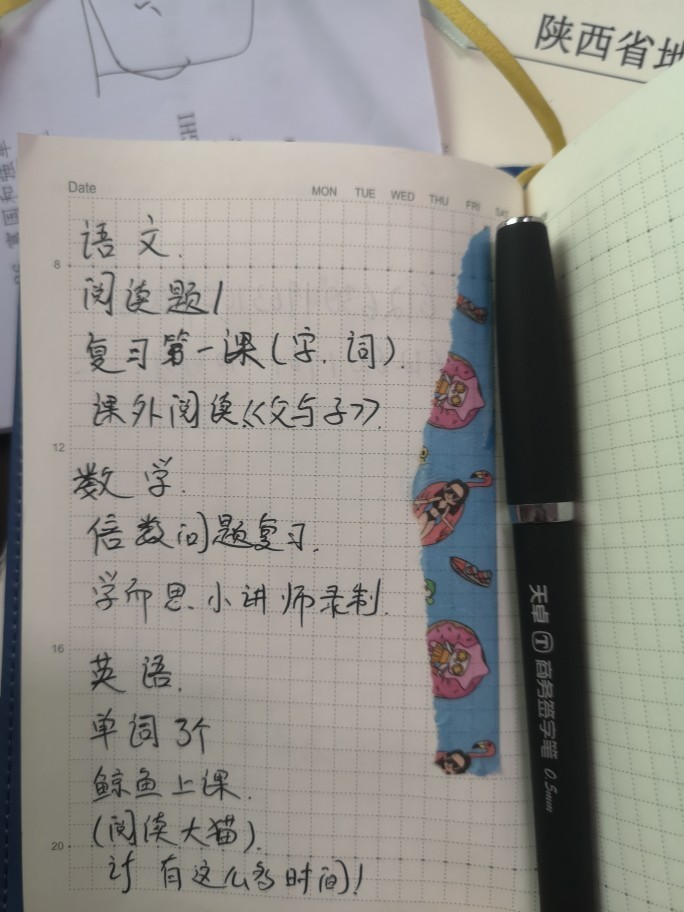 陕西省地
Date
MON TUE WED THU FRI
语文.
8
阅读题1
复习第一课(字.词).
课外阅读《父与子》.
12
数学.
倍数问题复习.
学而思.小讲师录制.
16
英语.
单词3个
鲸鱼上课.
(阅读大猫).
20
有这么多时间!
天卓 T 商务签字笔 0.5mm